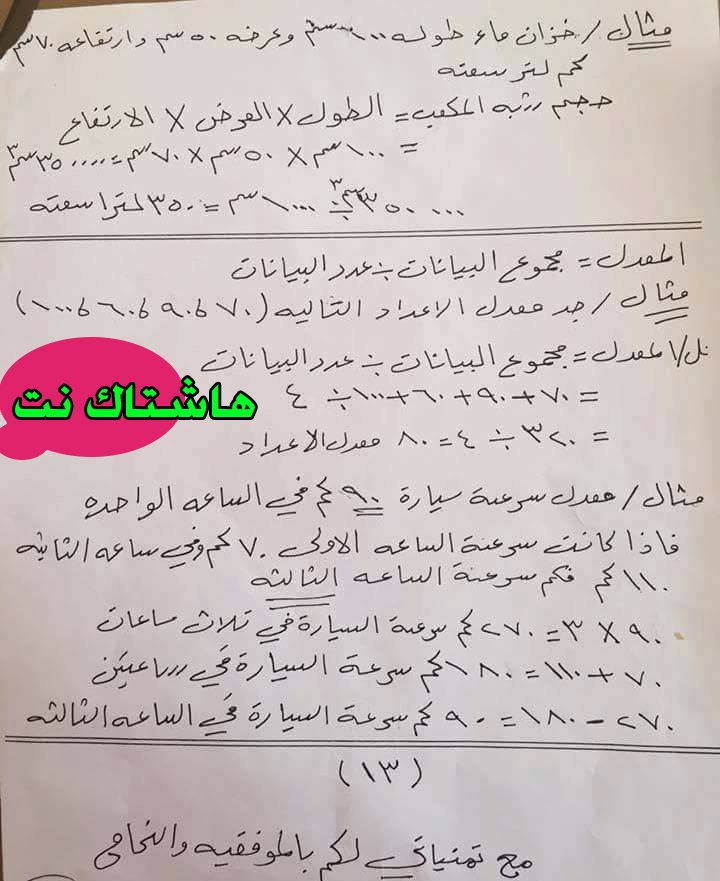 مثال / خزان ماء طوله ١٠٠ سم وعرضه ٥٠ سم وارتفاعه ٧٠ سم
كم لتر سعته
حجم شبه المكعب = الطول × العرض × الارتفاع
= ١٠٠ سم × ٥٠ سم × ٧٠ سم = ٣٥٠٠٠٠ سم٣
٣٥٠٠٠٠ سم٣ ÷ ١٠٠٠ سم = ٣٥٠ لترا سعته
المعدل = مجموع البيانات ÷ عدد البيانات
مثال / جد معدل الاعداد التاليه (٧٠ ، ٩٠ ، ٦٠ ، ١٠٠)
الحل / المعدل = مجموع البيانات ÷ عدد البيانات
= ٧٠ + ٩٠ + ٦٠ + ١٠٠ ÷ ٤
هاشتاك نت
= ٣٢٠ ÷ ٤ = ٨٠ معدل الاعداد
مثال / معدل سرعة سيارة ٩٠ كم في الساعه الواحده
فاذا كانت سرعة الساعه الاولى ٧٠ كم وفي ساعه الثانيه
١١٠ كم فكم سرعة الساعه الثالثه
٩٠ × ٣ = ٢٧٠ كم سرعة السيارة في ثلاث ساعات
٧٠ + ١١٠ = ١٨٠ كم سرعة السيارة في ساعتين
٢٧٠ - ١٨٠ = ٩٠ كم سرعة السيارة في الساعه الثالثه
(١٣)
مع تمنياتي لكم بالموفقيه والنجاح